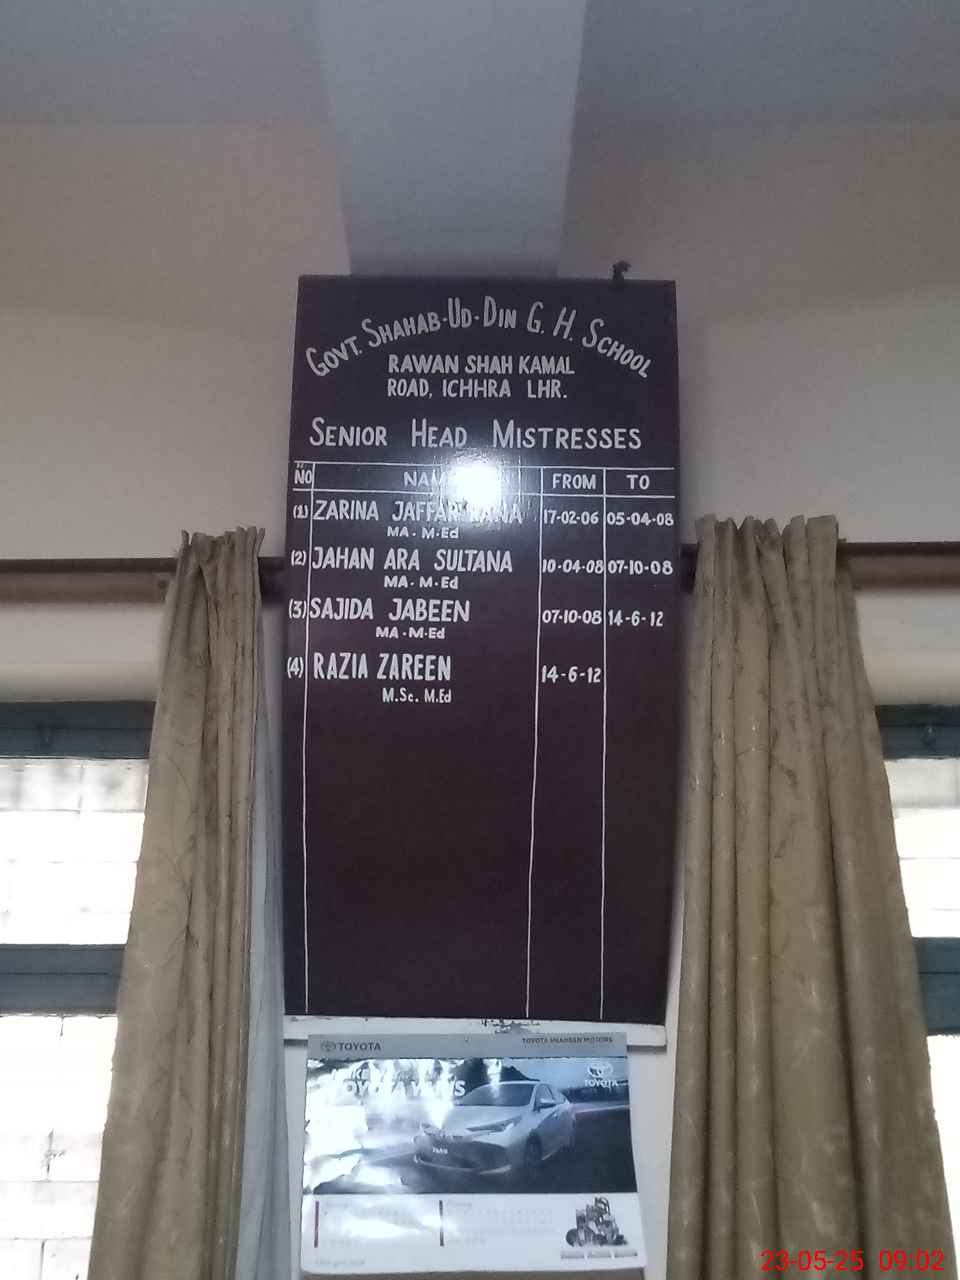 GOVT. SHAHAB-UD-DIN G. H. SCHOOL
RAWAN SHAH KAMAL
ROAD, ICHHRA LHR.
SENIOR HEAD MISTRESSES
NO NAME FROM TO
(1) ZARINA JAFFAR RANA 17-02-06 05-04-08
MA. M.Ed
(2) JAHAN ARA SULTANA 10-04-08 07-10-08
MA. M.Ed
(3) SAJIDA JABEEN 07-10-08 14-6-12
MA. M.Ed
(4) RAZIA ZAREEN 14-6-12
M.Sc. M.Ed
TOYOTA TOYOTA MOTORS
TOYOTA YARIS
TOYOTA
23-05-25 09:02